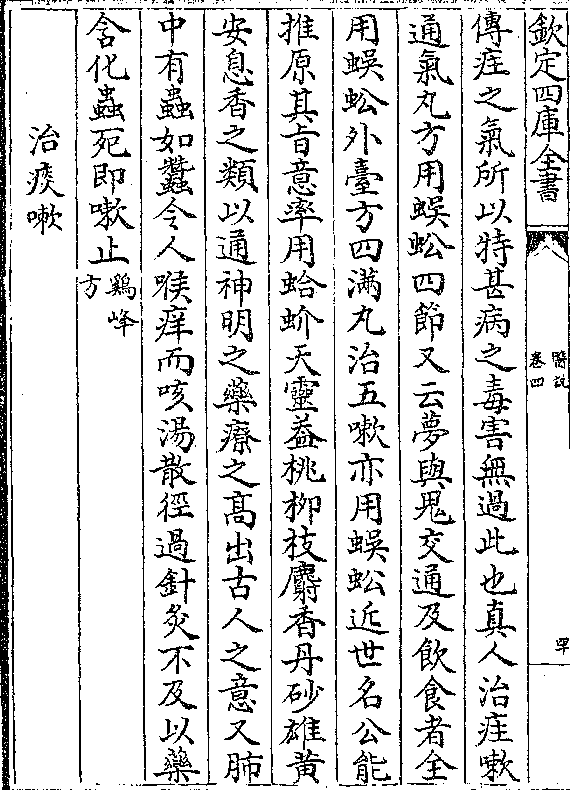 欽定四庫全書
醫説
卷四
罕
傳疰之氣所以特甚病之毒害無過此也真人治疰嗽
通氣丸方用蜈蚣四節又云夢與鬼交通及飲食者全
用蜈蚣外臺方四滿丸治五嗽亦用蜈蚣近世名公能
推原其旨意率用蛤蚧天靈葢桃柳枝麝香丹砂雄黄
安息香之類以通神明之藥療之髙出古人之意又肺
中有蟲如蠶令人喉痒而咳湯散徑過針灸不及以藥
含化蟲死即嗽止
鷄峰
方
治痰嗽